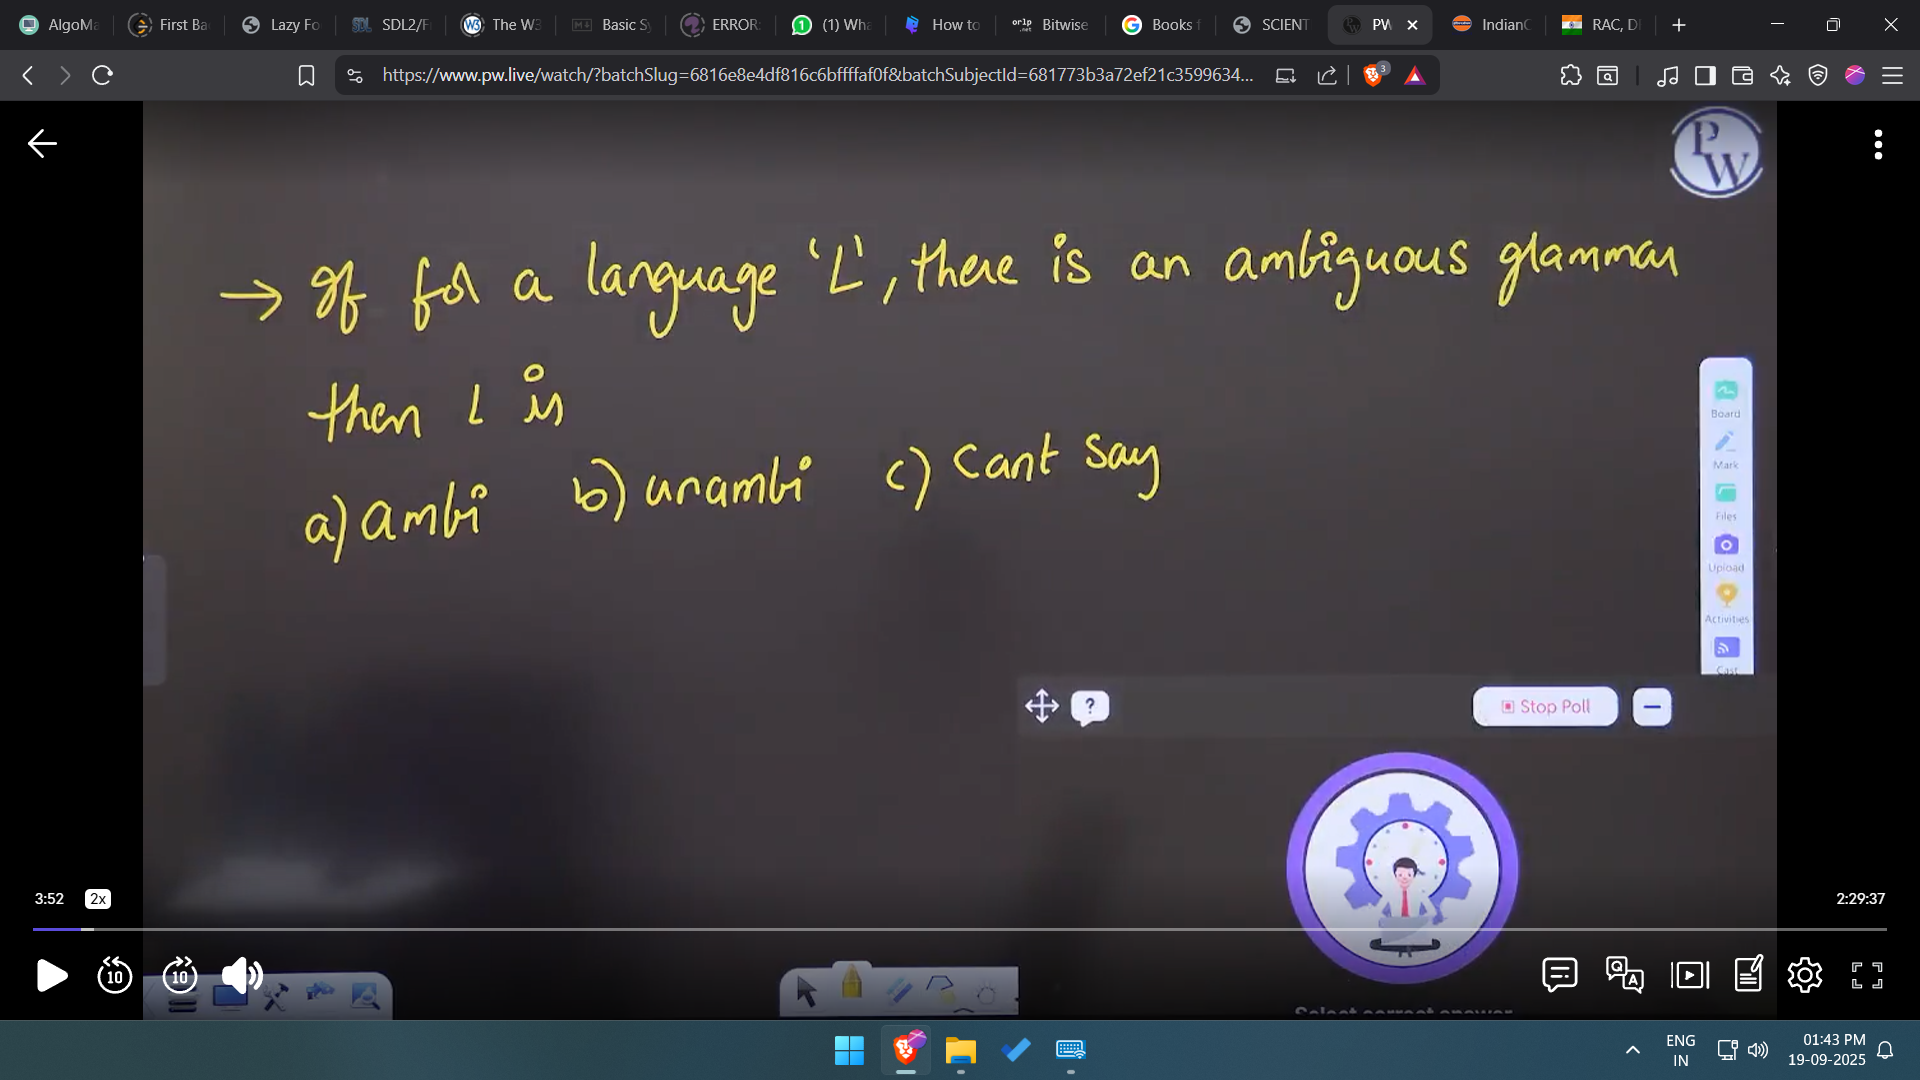 AlgoMa
First Ba
Lazy Fo
SDL2/F
The W3
Basic Sy
ERROR:
(1) Wha
How to
Bitwise
Books f
SCIENT
PW
IndianC
RAC, DF
https://www.pw.live/watch/?batchSlug=6816e8e4df816c6bffffaf0f&batchSubjectId=681773b3a72ef21c3599634...
3
PW
→ If for a language 'L', there is an ambiguous grammar
then L is
a) ambi b) unambi c) cant say
Board
Mark
Files
Upload
Activities
Cast
?
Stop Poll
3:52 2x
2:29:37
10
10
Select correct answer
ENG
IN
01:43 PM
19-09-2025